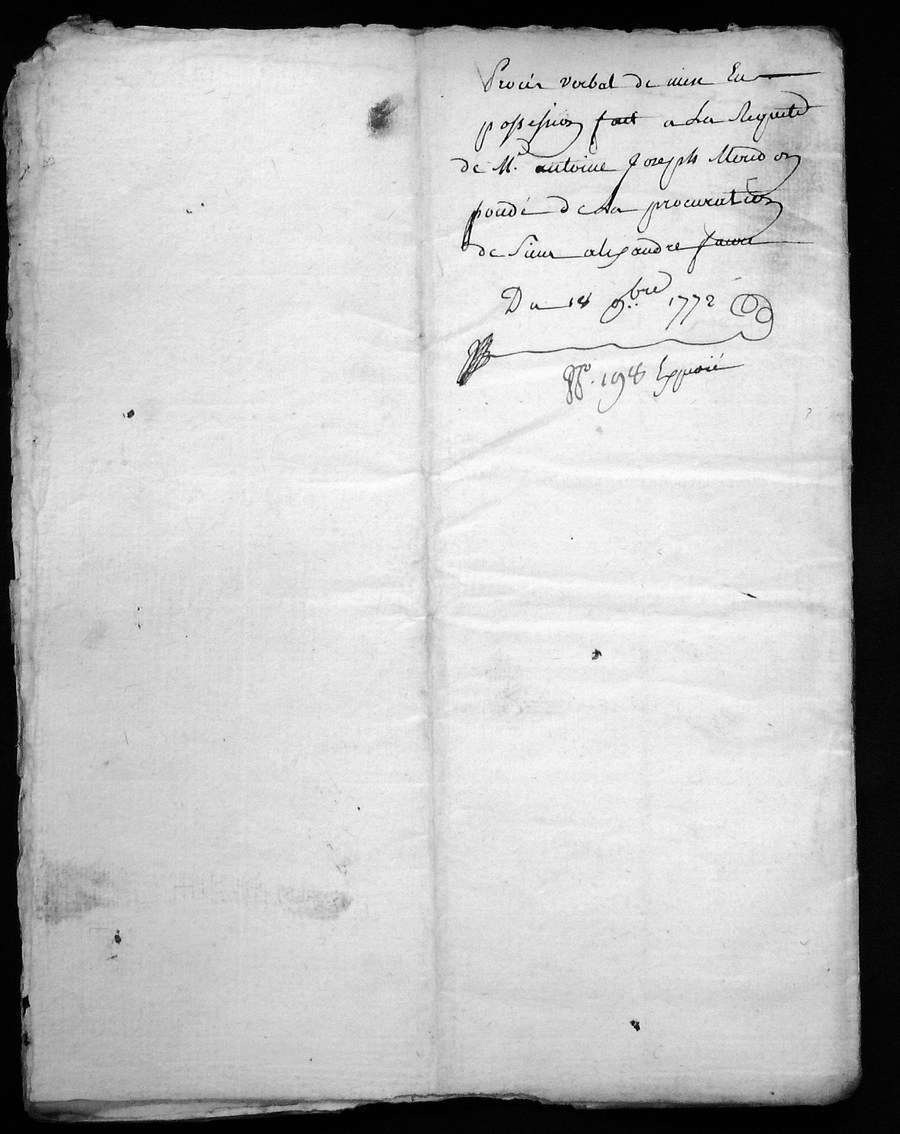 Procès verbal de mise En
possession fait a La Requete
de Mr. antoine Joseph
fondé de La procuration
de Sieur alexandre faure
Du 18 9.bre 1772
198 Expedié